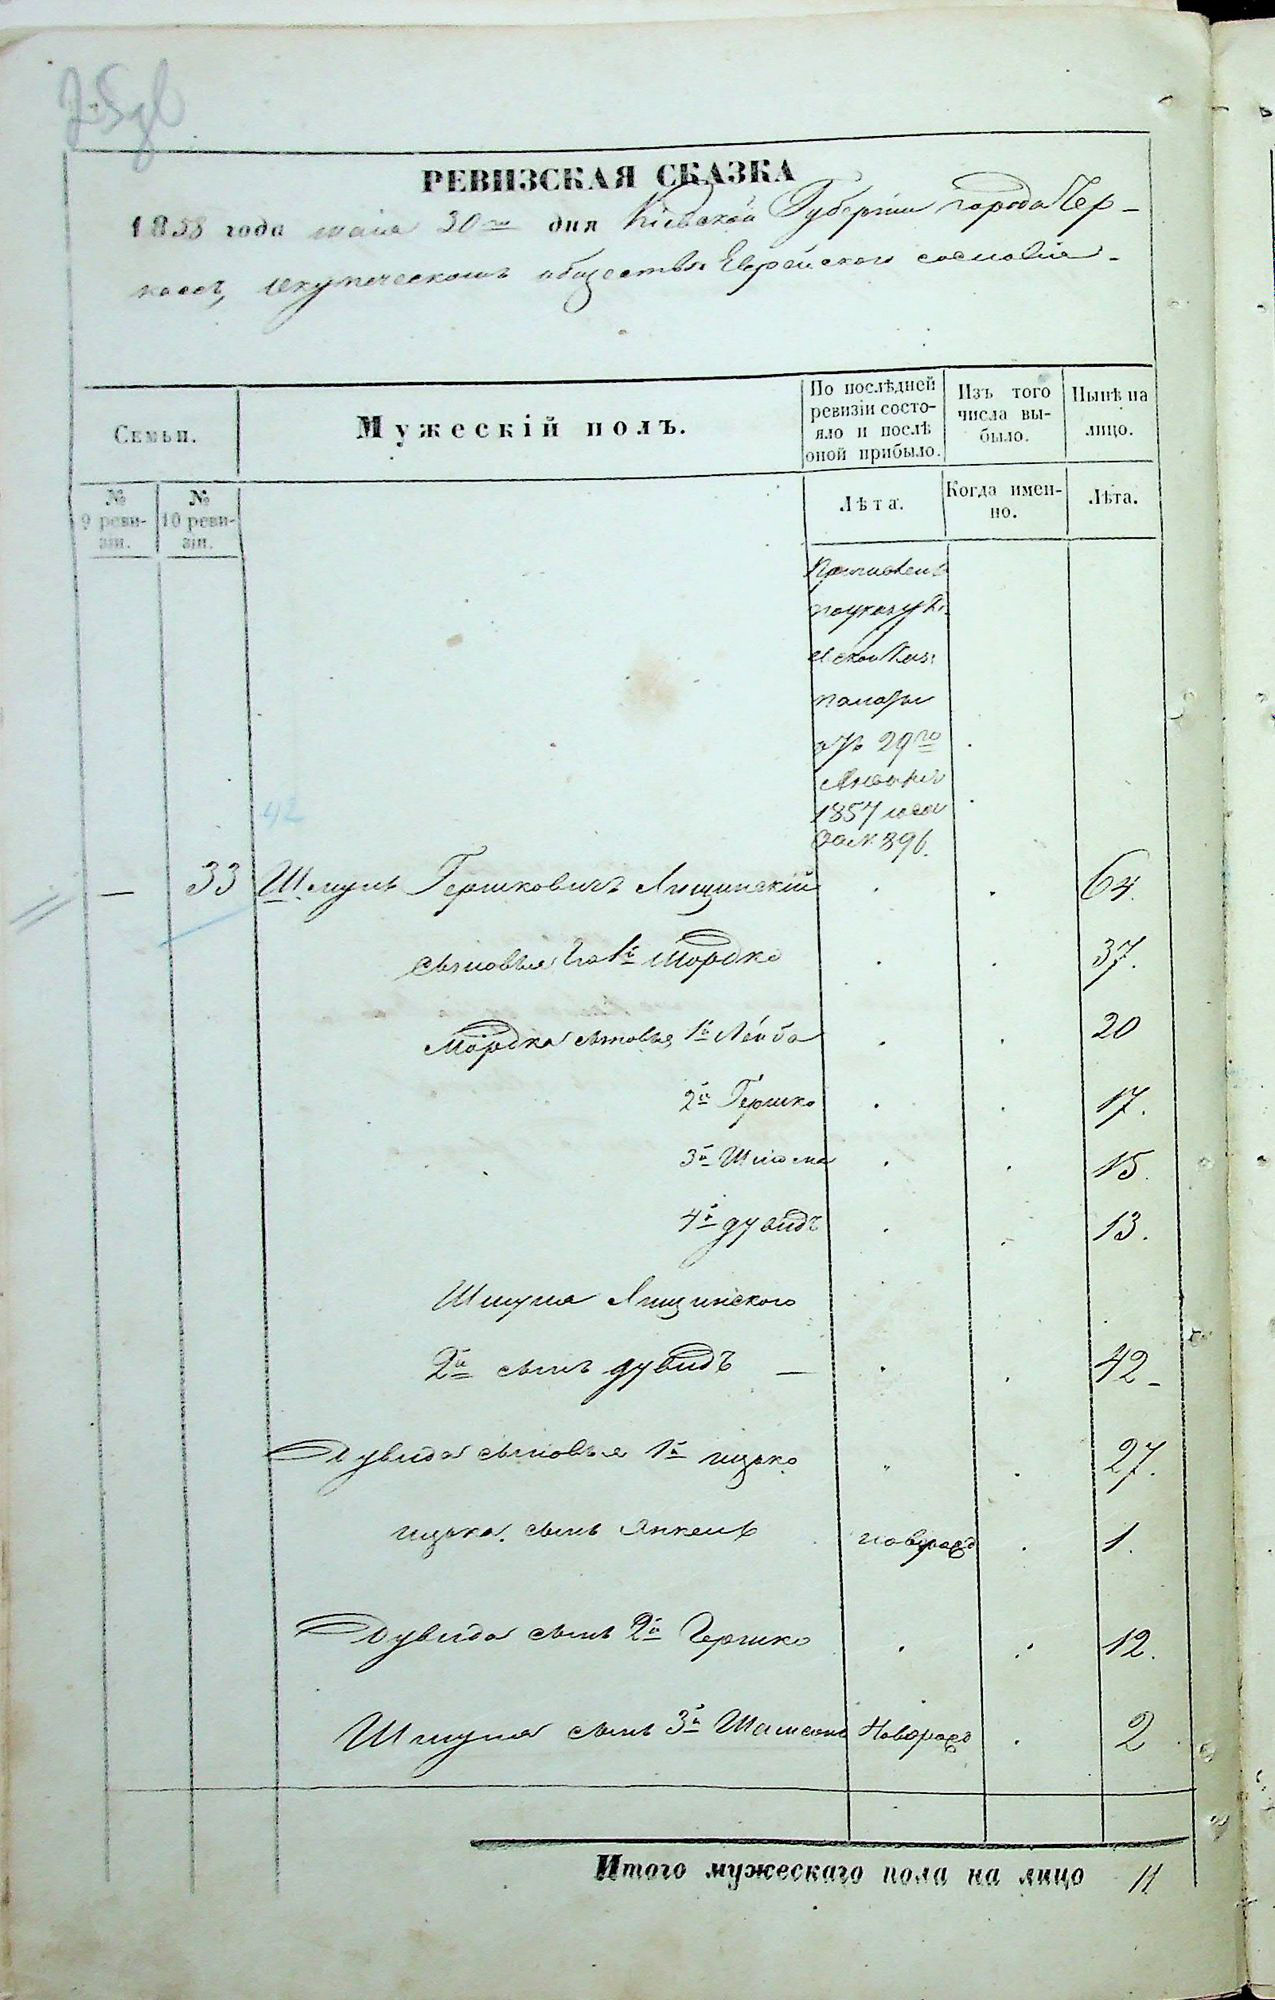 РЕВИЗСКАЯ СКАЗКА
1858 года маія 30го дня Кіевской Губерніи города Чер-
кассъ, о купеческомъ обществѣ Еврейского сословія.
Семьи.
Мужескій полъ.
По послѣдней
ревизіи состо-
яло и послѣ
оной прибыло.
Изъ того
числа вы-
было.
Нынѣ на
лицо.
№
9 реви-
зіи.
№
10 реви-
зіи.
Лѣта.
Когда имен-
но.
Лѣта.
Причислен
по указу Кі-
евской Каз.
палаты
отъ 29го
Января
1857 года
за № 396.
42
— 33 Шмуль Гершковичъ Лищинскій . . 64.
сыновья его 1й Мордко . . 37.
Мордка сыновья, 1й Лейба . . 20
2й Гершко . . 17.
3й Шлиома . . 15.
4й Дувидъ . . 13.
Шмуля Лищинского
2й сынъ Дувидъ — . . 42-
Дувида сыновья 1й Ицько " . 27.
Ицька сынъ Янкель новорож . 1.
Дувида сынъ 2й Гершко . . 12.
Шмуля сынъ 3й Шамсонъ Новорож . 2
Итого мужескаго пола на лицо 11